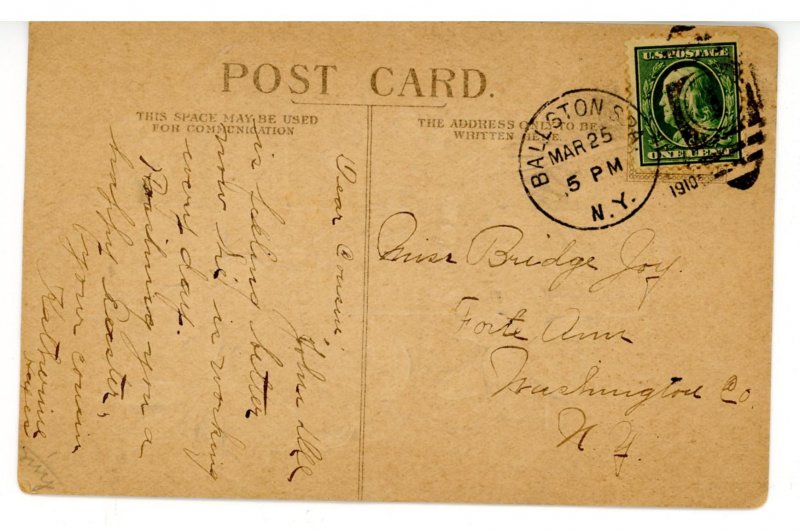 POST CARD.
THIS SPACE MAY BE USED
FOR COMMUNICATION
THE ADDRESS ONLY TO BE
WRITTEN HERE.
U.S. POSTAGE
ONE CENT
BALLSTON SPA
MAR 25
5 PM
N.Y.
1910
Dear Cousin,
John
is feeling better
now he is working
every day.
Reaching you a
happy Easter,
your cousin
Katherine
Miss Bridge Joy.
Forte Ann
Washington Co.
N.Y.